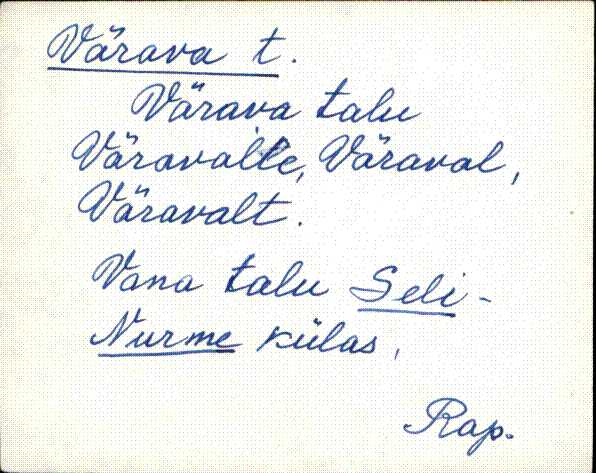 Värava t.
Värava talu
Väravalle, Väraval,
Väravalt.
Vana talu Seli-
Nurme külas,
Rap.